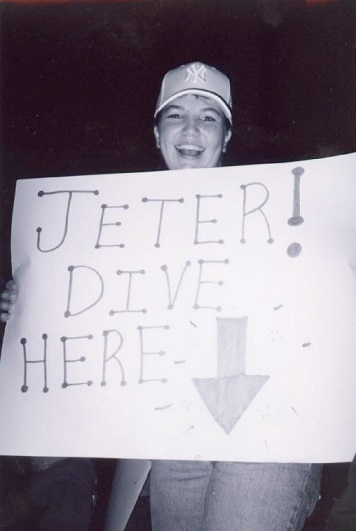 NY
JETER!
DIVE
HERE